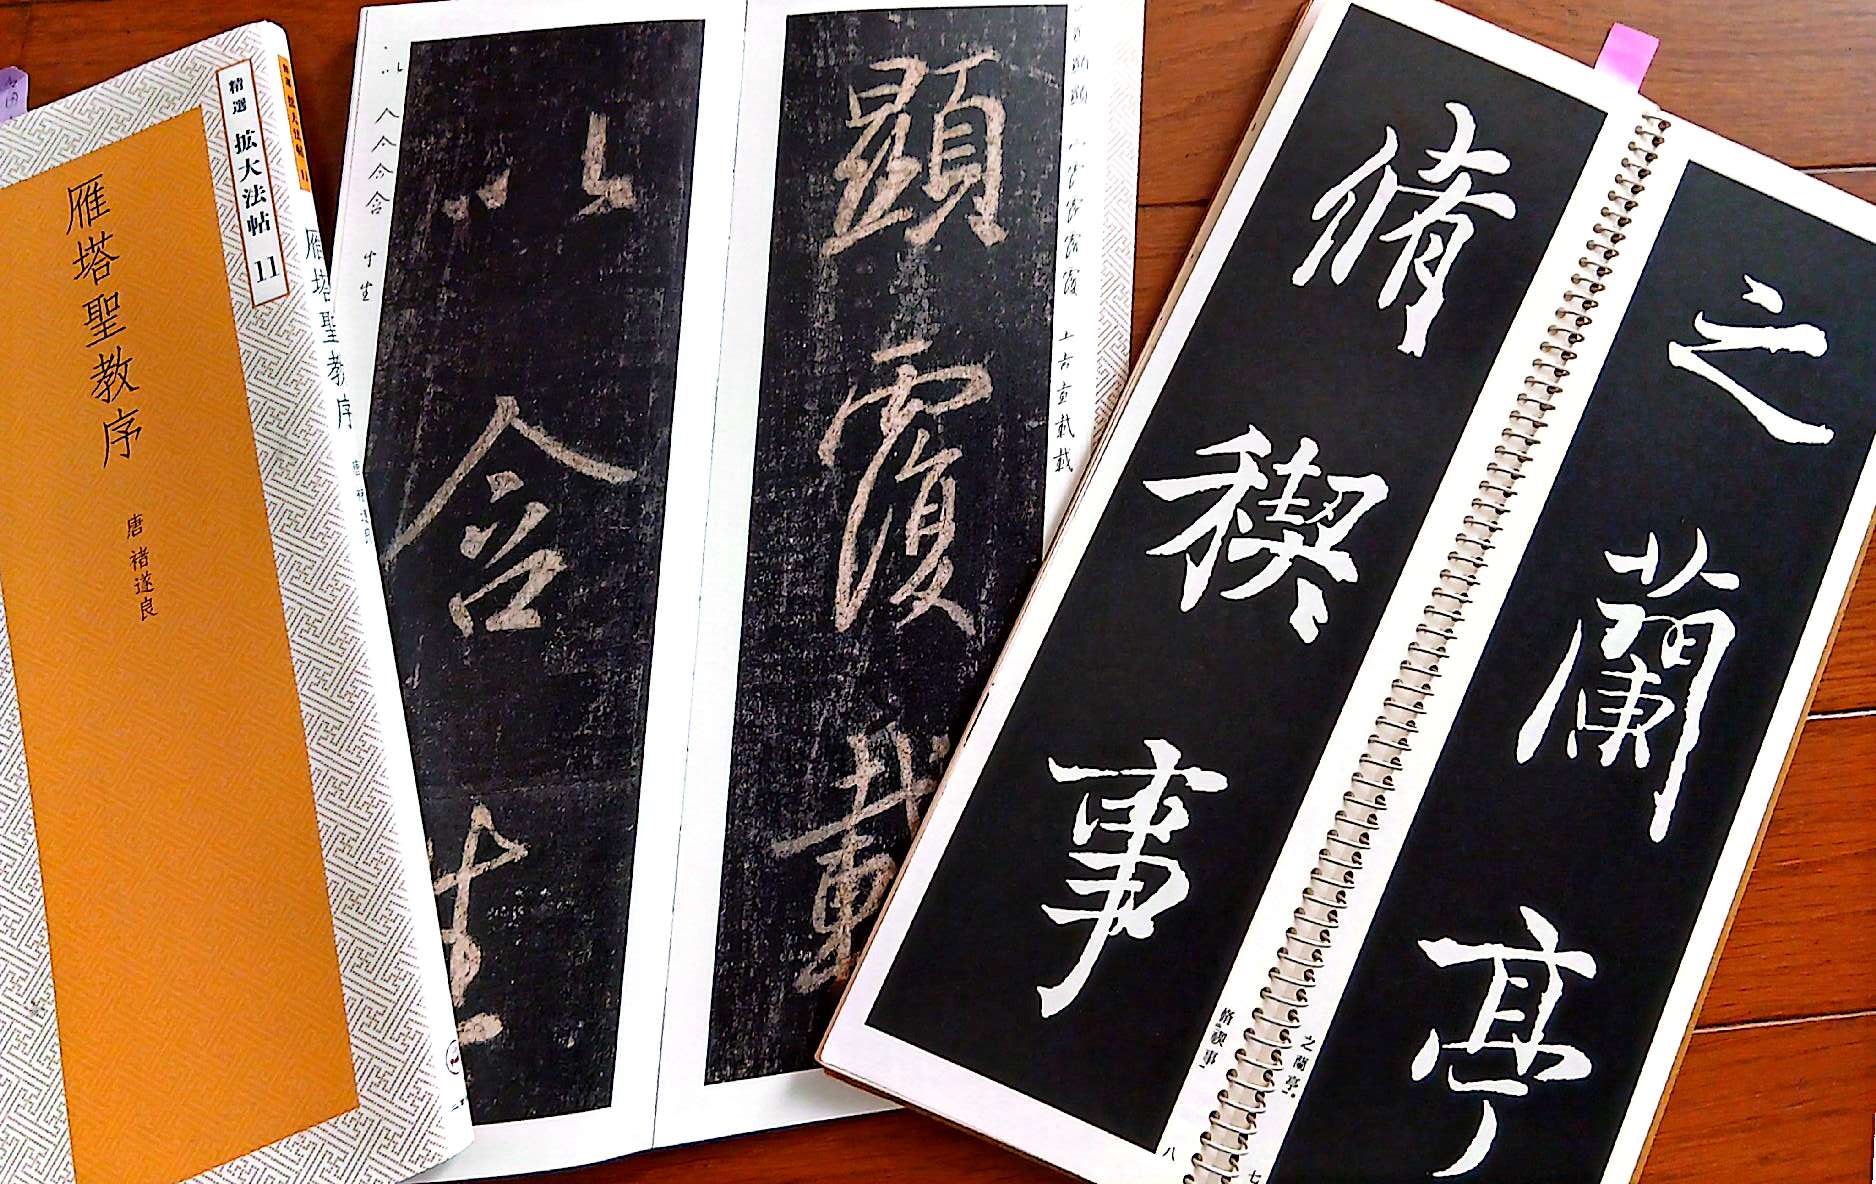 精選 拡大法帖 11
雁塔聖教序
唐 褚遂良
雁塔聖教序
顕覆載
以含生
之蘭亭
脩稧事
之蘭亭
脩稧事
七
八